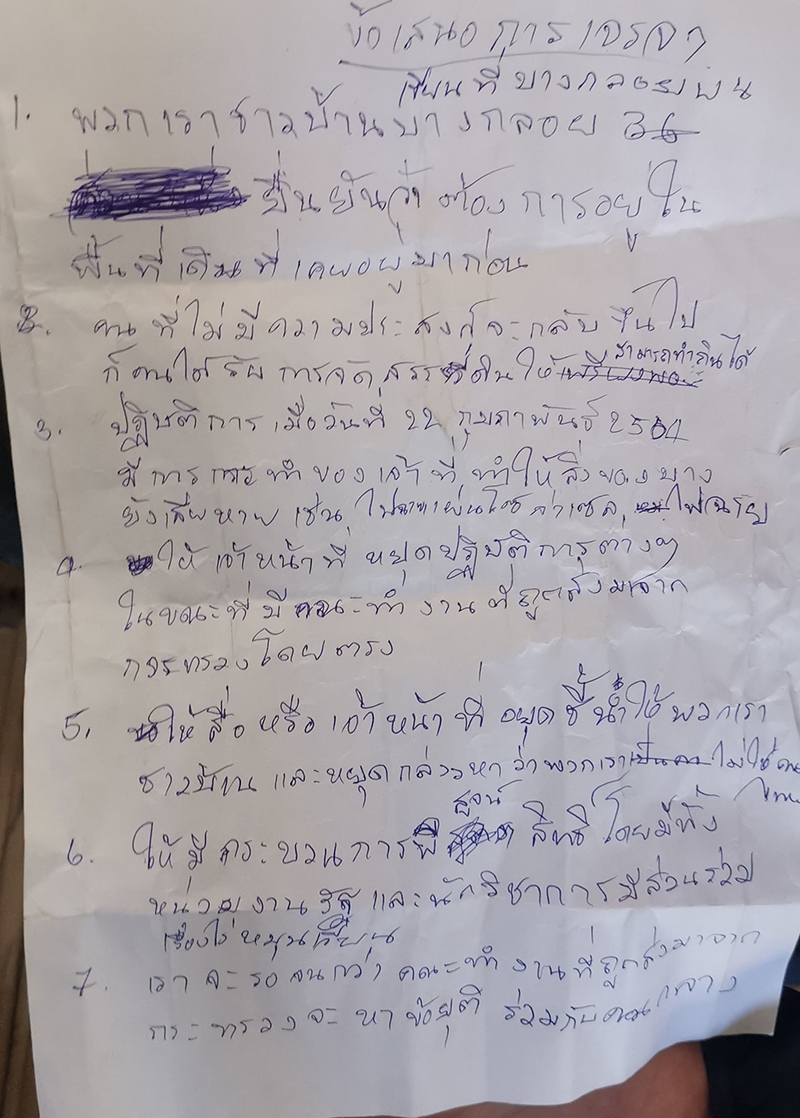 ข้อเสนอการเจรจา
เขียนที่บางกลอยบน
1. พวกเราชาวบ้านบางกลอย 36
ยื่นยันว่าต้องการอยู่ใน
พื้นที่เดิมที่เคยอยู่มาก่อน
2. คนที่ไม่มีความประสงค์จะกลับขึ้นไป
ก็คนได้รับการจัดสรรที่ดินให้เพียงพอ สามารถทำกินได้
3. ปฏิบัติการเมื่อวันที่ 22 กุมภาพันธ์ 2564
มีการกระทำของเจ้าที่ทำให้สิ่งของบาง
ยังเสียหาย เช่น ไฟฉาย แผ่นโซล่าเซล
4. ให้เจ้าหน้าที่หยุดปฏิบัติการต่างๆ
ในขณะที่มีคณะทำงานที่ถูกส่งมาจาก
กระทรวงโดยตรง
5. ให้สื่อหรือเจ้าหน้าที่หยุดชี้นำให้พวกเรา
ชาวบ้าน และหยุดกล่าวหาว่าพวกเราเป็นคนไม่ใช่คน
ไทย
6. ให้มีกระบวนการพิสูจน์สิทธิโดยมีทั้ง
หน่วยงานรัฐและนักวิชาการมีส่วนร่วม
เรื่องไร่หมุนเวียน
7. เราจะรอจนกว่าคณะทำงานที่ถูกส่งมาจาก
กระทรวงจะหาข้อยุติร่วมกับคนกลาง